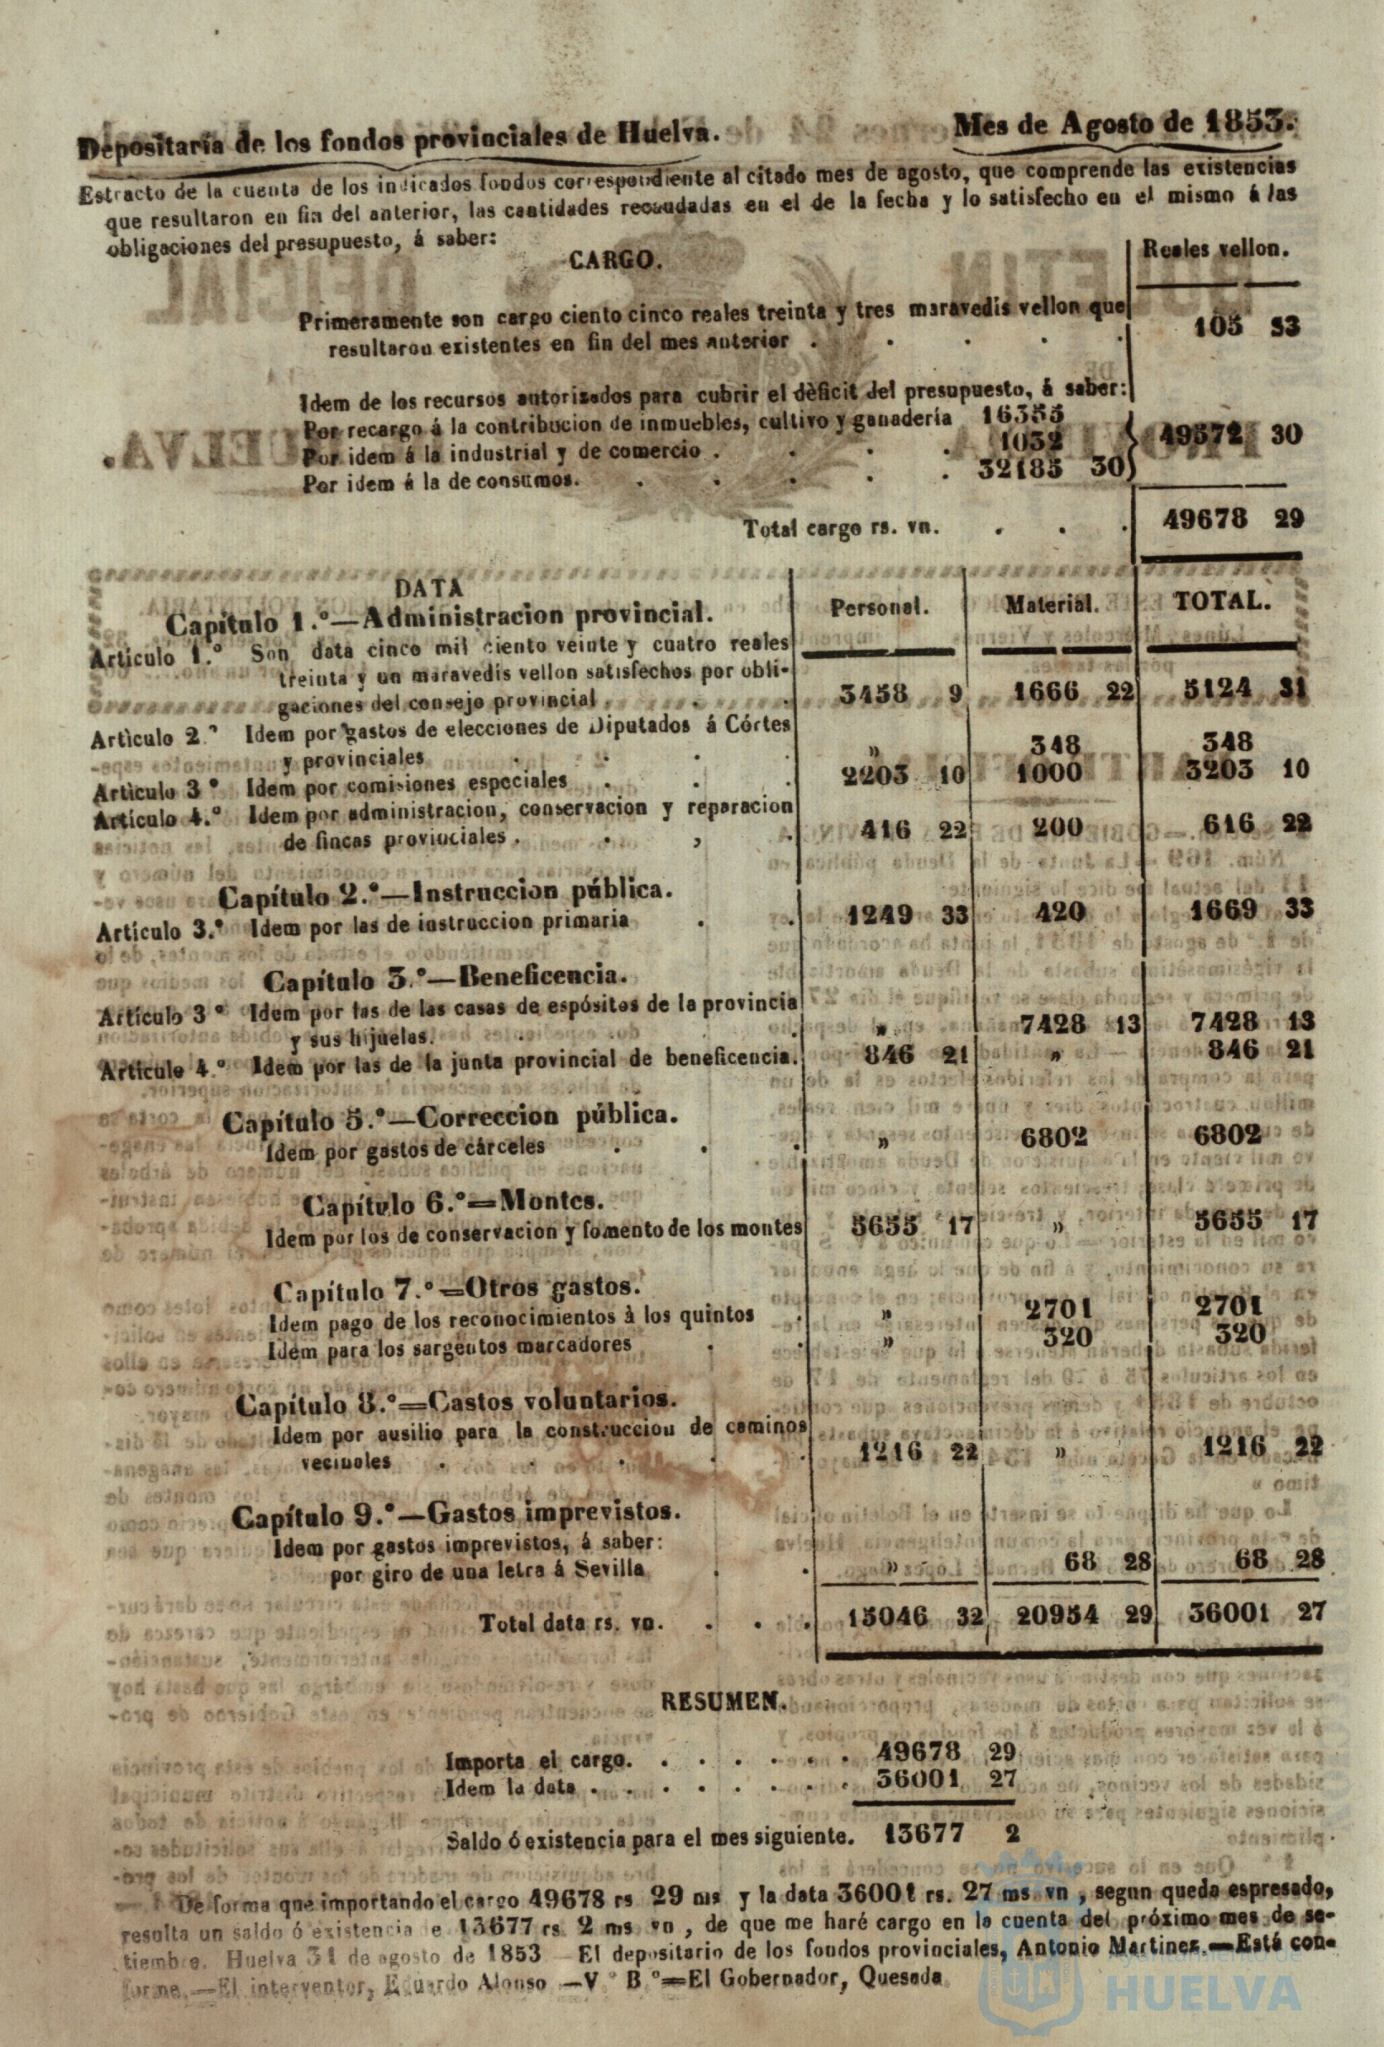 Depositaría de los fondos provinciales de Huelva. Mes de Agosto de 1853.
Estracto de la cuenta de los indicados fondos correspondiente al citado mes de agosto, que comprende las existencias
que resultaron en fin del anterior, las cantidades recaudadas en el de la fecha y lo satisfecho en el mismo á las
obligaciones del presupuesto, á saber:
CARGO. Reales vellon.
Primeramente son cargo ciento cinco reales treinta y tres maravedis vellon que
resultaron existentes en fin del mes anterior . . . . . 105 33
Idem de los recursos autorizados para cubrir el dèficit del presupuesto, á saber:
Por recargo á la contribucion de inmuebles, cultivo y ganadería 16355
Por idem á la industrial y de comercio . . . . 1032 49572 30
Por idem á la de consumos. . . . . . 32185 30
Total cargo rs. vn. . . . 49678 29
DATA
Capítulo 1.º—Administracion provincial. Personal. Material. TOTAL.
Artículo 1.º Son data cinco mil ciento veinte y cuatro reales
treinta y un maravedis vellon satisfechos por obli-
gaciones del consejo provincial . . . 3458 9 1666 22 5124 31
Artìculo 2.º Idem por gastos de elecciones de Diputados á Córtes
y provinciales . . . . » 348 348
Artìculo 3º Idem por comisiones especiales . . . 2203 10 1000 3203 10
Artículo 4.º Idem por administracion, conservacion y reparacion
de fincas provinciales . . , . 416 22 200 616 22
Capítulo 2.º—Instruccion pública.
Artículo 3.º Idem por las de instruccion primaria . . 1249 33 420 1669 33
Capítulo 3.º—Beneficencia.
Artículo 3º Idem por las de las casas de espósitos de la provincia
y sus hijuelas. . . . . » 7428 13 7428 13
Artículo 4.º Idem por las de la junta provincial de beneficencia. 846 21 » 846 21
Capítulo 5.º—Correccion pública.
Idem por gastos de cárceles . . . » 6802 6802
Capítulo 6.º=Montes.
Idem por los de conservacion y fomento de los montes 5655 17 » 5655 17
Capítulo 7.º=Otros gastos.
Idem pago de los reconocimientos à los quintos . » 2701 2701
Idem para los sargentos marcadores . . » 320 320
Capítulo 8.º=Gastos voluntarios.
Idem por ausilio para la construccion de caminos
vecinales . . . . . 1216 22 » 1216 22
Capítulo 9.º—Gastos imprevistos.
Idem por gastos imprevistos, á saber:
por giro de una letra á Sevilla . . » 68 28 68 28
Total data rs. vn. . . . 15046 32 20954 29 36001 27
RESUMEN.
Importa el cargo. . . . . . . . 49678 29
Idem la data . . . . . . . . 36001 27
Saldo ó existencia para el mes siguiente. 13677 2
De forma que importando el cargo 49678 rs 29 ms y la data 36001 rs. 27 ms vn , segun queda espresado,
resulta un saldo ó existencia e 13677 rs 2 ms vn , de que me haré cargo en la cuenta del próximo mes de se-
tiembre. Huelva 31 de agosto de 1853 El depositario de los fondos provinciales, Antonio Martinez.—Está con-
forme.—El interventor, Eduardo Alonso —V º B º=El Gobernador, Quesada
Ayuntamiento de
HUELVA